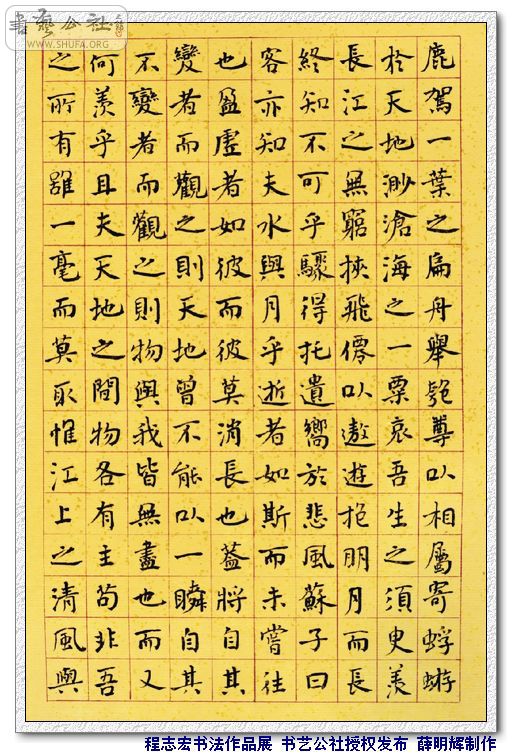 書藝公社
WWW.SHUFA.ORG
鹿駕一葉之扁舟舉匏尊以相屬寄蜉蝣
於天地渺滄海之一粟哀吾生之須臾羨
長江之無窮挾飛僊以遨遊抱明月而長
終知不可乎驟得托遺響於悲風蘇子曰
客亦知夫水與月乎逝者如斯而未嘗往
也盈虛者如彼而彼莫消長也蓋將自其
變者而觀之則天地曾不能以一瞬自其
不變者而觀之則物與我皆無盡也而又
何羨乎且夫天地之間物各有主苟非吾
之所有雖一毫而莫取惟江上之清風與
程志宏书法作品展 书艺公社授权发布 薛明辉制作